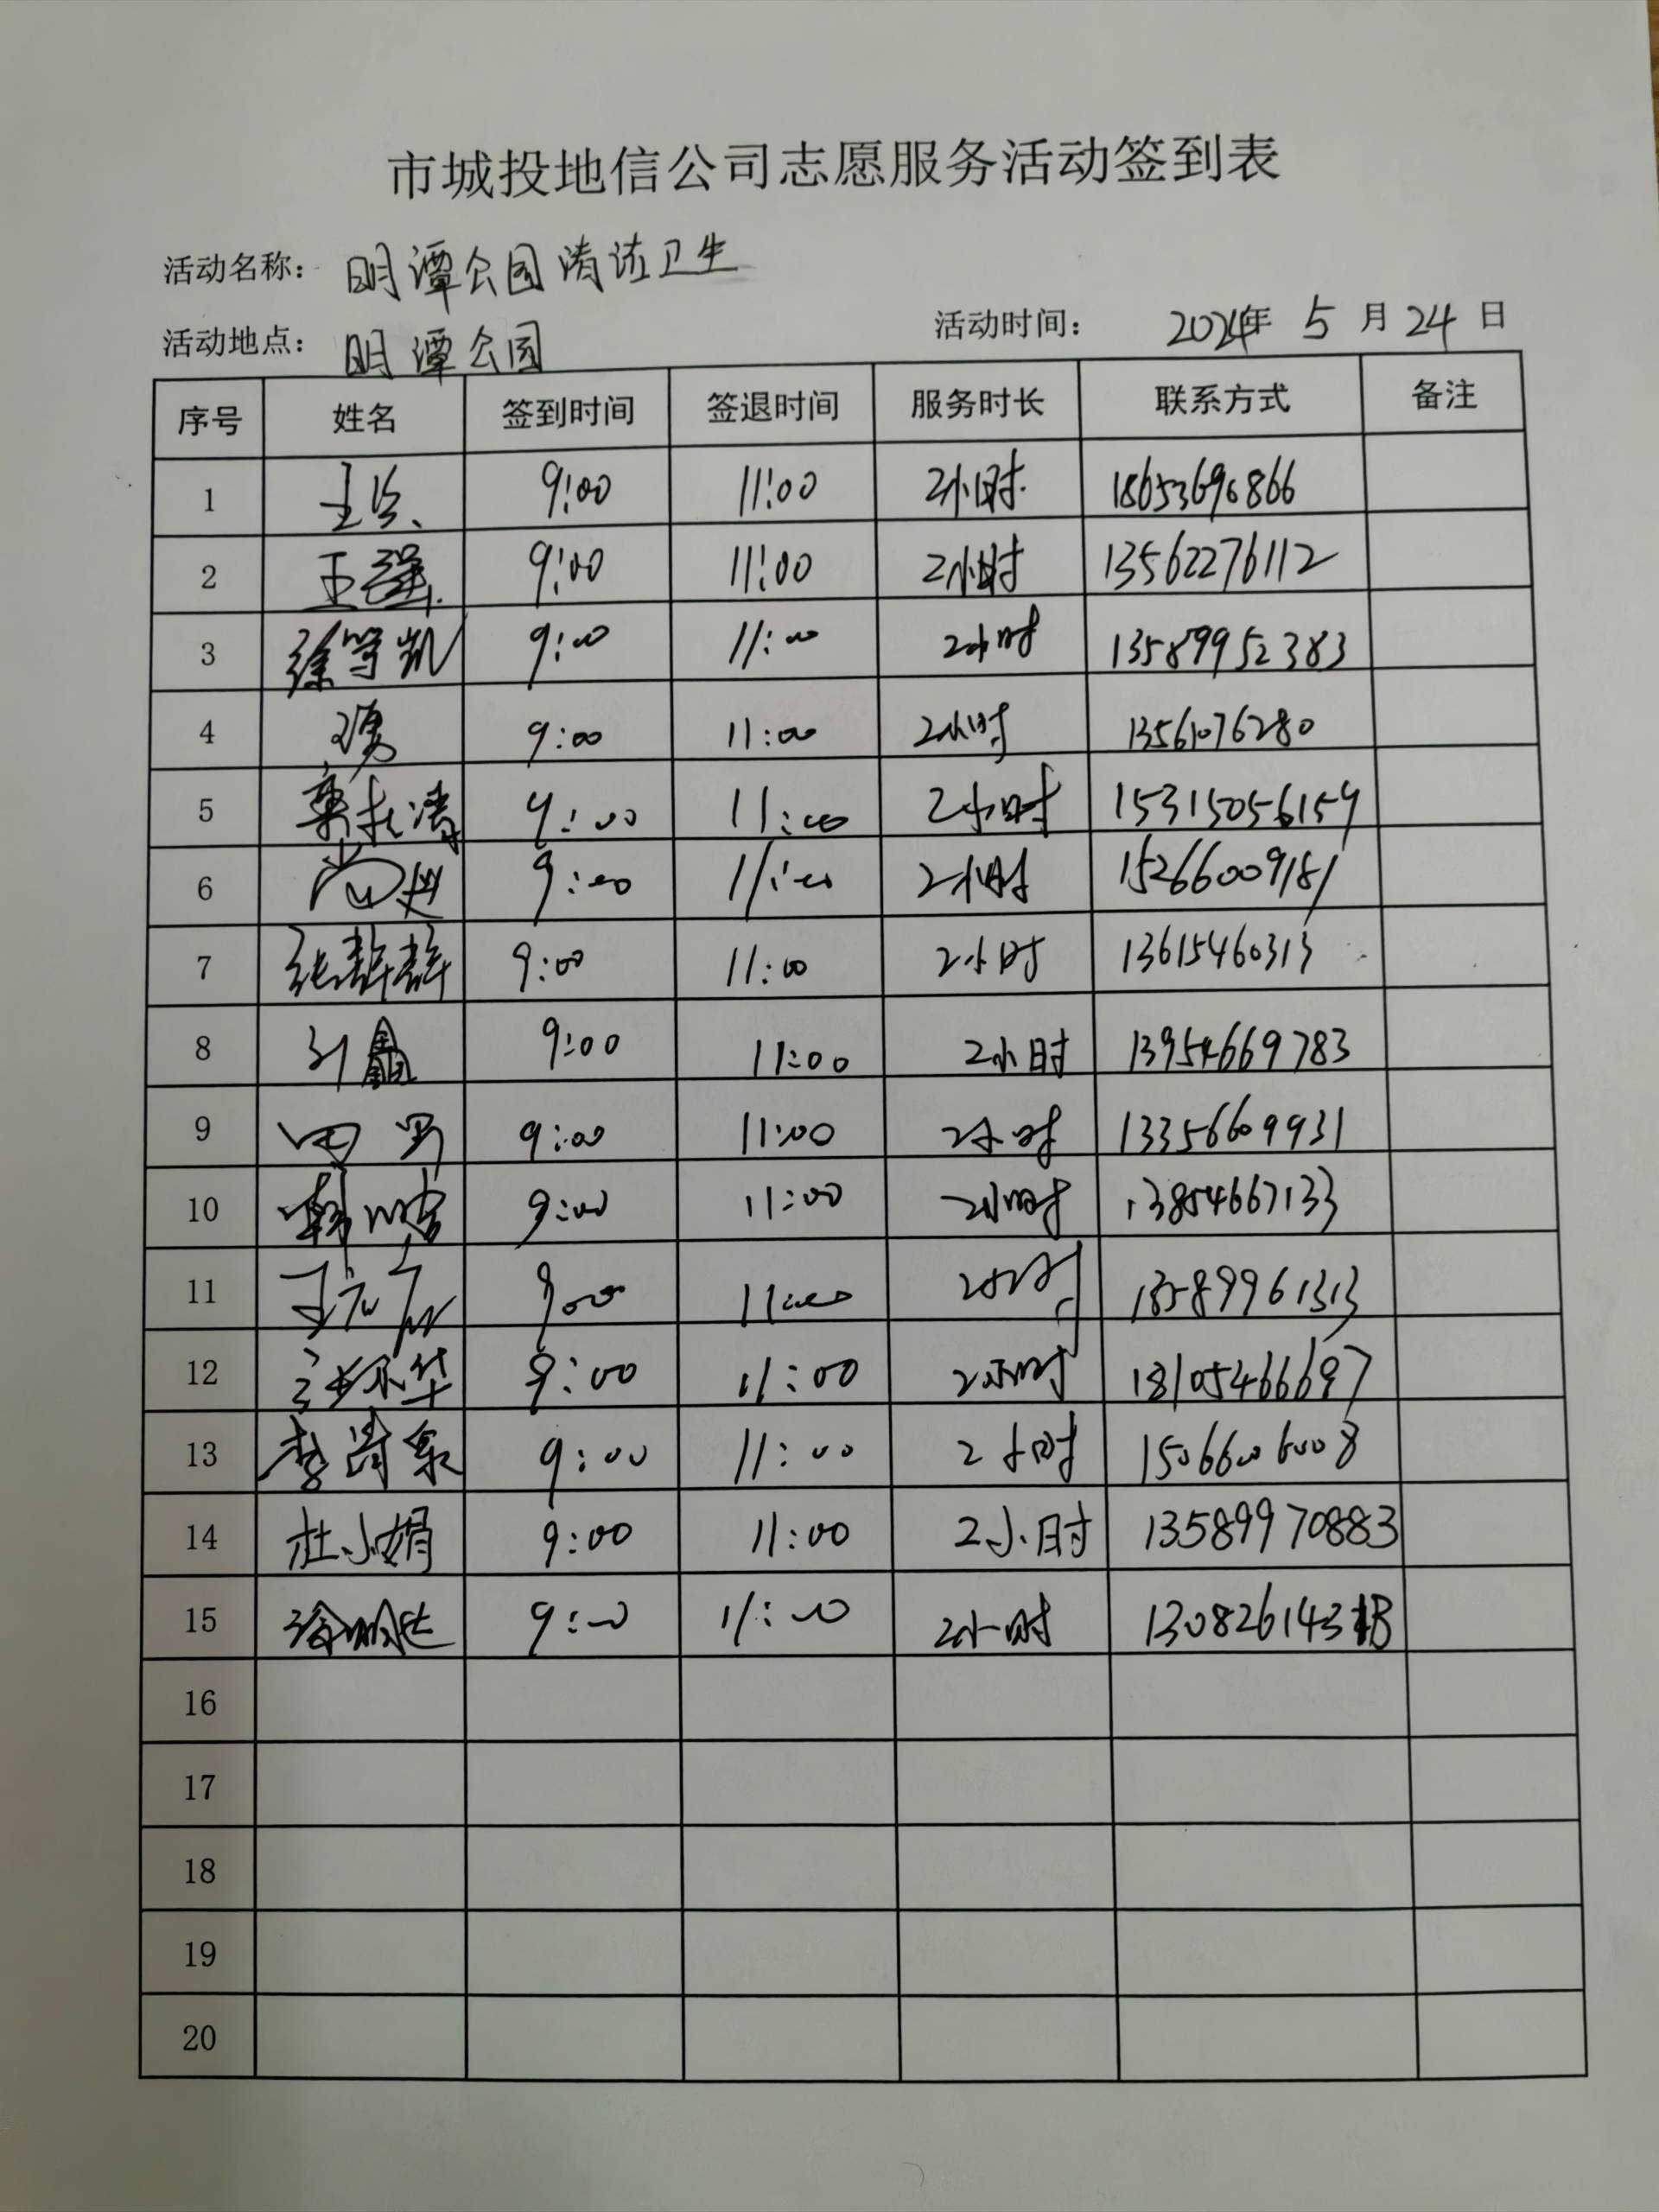 市城投地信公司志愿服务活动签到表
活动名称： 明潭公园清洁卫生
活动地点： 明潭公园 活动时间： 2024年 5 月 24 日
序号 姓名 签到时间 签退时间 服务时长 联系方式 备注
1 9:00 11:00 2小时 18653696866
2 王强 9:00 11:00 2小时 13562276112
3 徐守凯 9:00 11:00 2小时 13589952383
4 9:00 11:00 2小时
5 9:00 11:00 2小时 15315056159
6 9:00 11:00 2小时 15266009181
7 张群群 9:00 11:00 2小时 13615460313
8 刘鑫 9:00 11:00 2小时 13954669783
9 田野 9:00 11:00 2小时 13356609931
10 9:00 11:00 2小时 13854667133
11 9:00 11:00 2小时 13589961313
12 9:00 11:00 2小时 18105466697
13 9:00 11:00 2小时 15066006008
14 杜小娟 9:00 11:00 2小时 13589970883
15 9:00 11:00 2小时
16
17
18
19
20